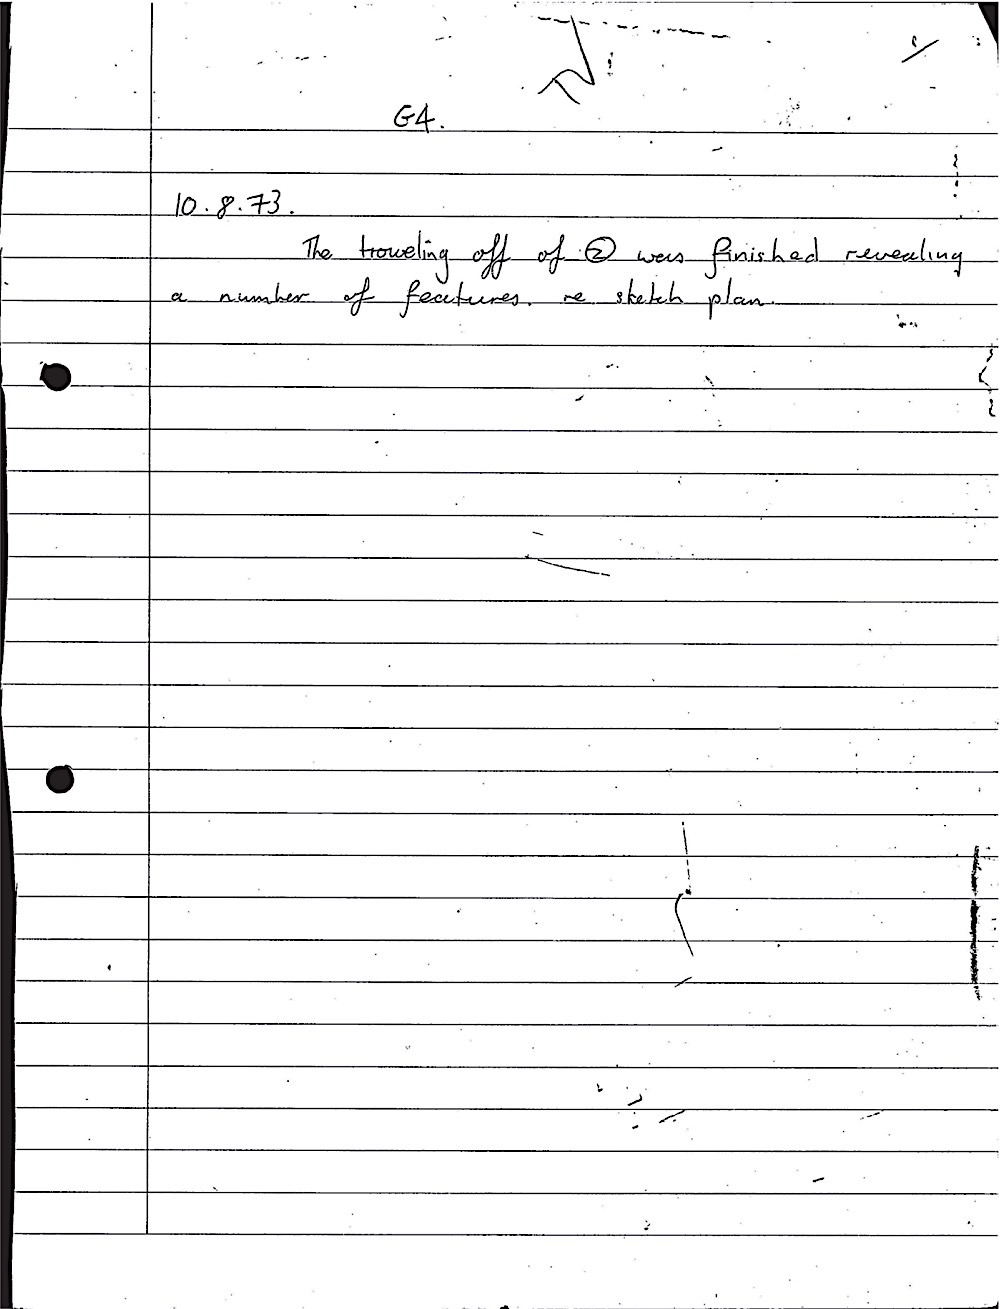 G4.
10.8.73.
The troweling off of ② was finished revealing
a number of features. re sketch plan.